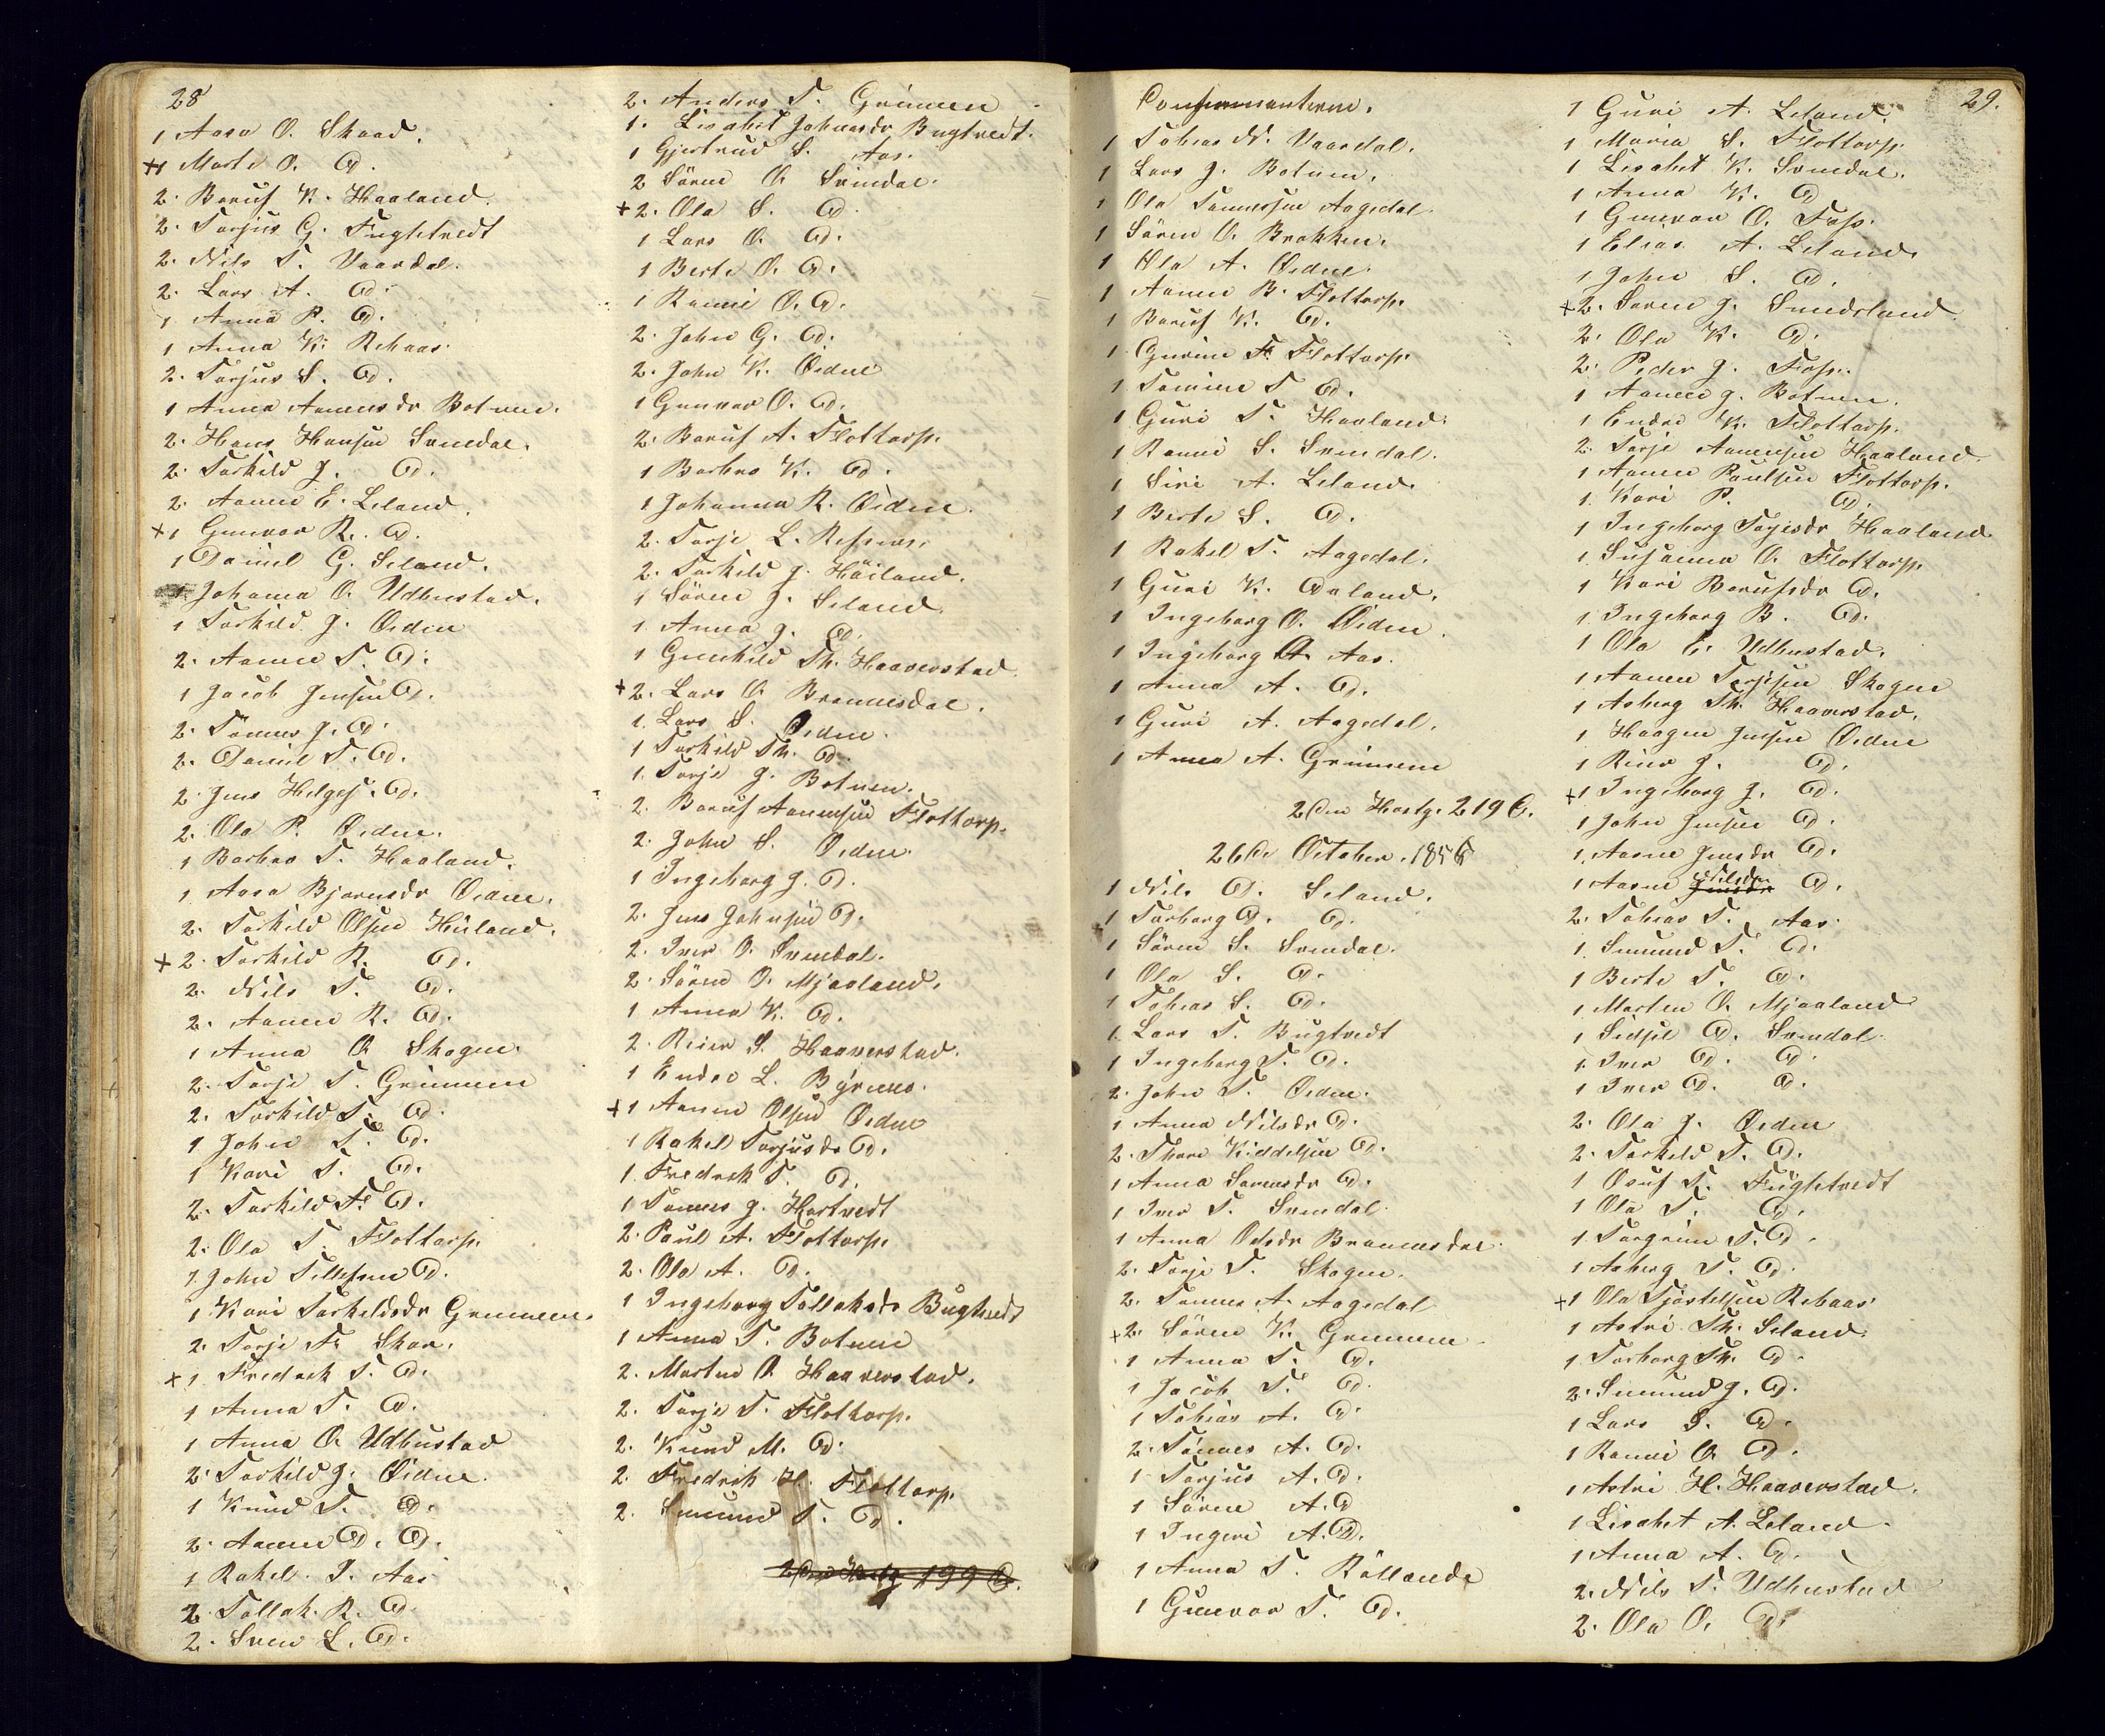 28
1 Aasa O. Skaad.
+1 Marte O. Id.
2. Beruf K. Haaland.
2. Torjus G. Fuglstvedt
2. Nils T. Vaardal.
2. Lars A. Id.
1 Anna P. Id.
1 Anna K. Rebaas.
2. Torjus S. Id.
1 Anna Aanensdr Botnen.
2. Hans Hansen Svindal.
2. Torkild J. Id.
2. Aanen E. Leland.
+1 Gunvor R. Id.
1 Daniel G. Seland.
1 Johanna O. Udbustad.
1 Torkild J. Øidne
2. Aanen T. Id.
1 Jacob Jensen Id.
2. Tönnes J. Id.
2. Daniel T. Id.
2. Jens Helges. Id.
2. Ola P. Øidne.
1 Barbro T. Haaland.
1 Aasa Bjornsdr Øidne.
2. Torkild Olsen Hüland.
+2. Torkild R. Id.
2. Nils T. Id.
2. Aanen R. Id.
1 Anna O. Skogen.
2. Torje T. Grimnen
2. Torkild T. Id.
1 John T. Id.
1 Kari T. Id.
2. Torkild F. Id.
2. Ola T. Flottorp.
1. John Tellefsen Id.
1 Kari Torkildsdr Grimnen.
2. Torje F. Skar.
+1 Fredrek T. Id.
1 Anna T. Id.
1 Anna O. Udbustad
2. Torkild J. Øidne.
1 Knud T. Id.
2. Aanen Id. Id.
1 Rakel J. Aas
2. Tollak R. Id.
2. Sven L. Id.
2. Anders T. Grimnen
1. Lisabet Johnsdr Bugtvedt.
1 Gjertrud S. Aas.
2 Sören O. Svindal.
+2. Ola S. Id.
1 Lars O. Id.
1 Berte O. Id.
1 Ranni O. Id.
2. John G. Id.
2. John K. Øidne
1 Gunvor O. Id.
2. Beruf A. Flottorp.
1 Barbro K. Id.
1 Johanna R. Øidne.
2. Torje L.
2. Torkild J. Höiland.
1 Sören J. Seland.
1. Anna J. Id.
1 Gunhild Th. Haaverstad.
+2. Lars O. Brannesdal.
1. Lars S. Øidne.
1 Torkild Th. Id.
1. Torje J. Botnen.
2. Beruf Aanensen Flottorp.
2. John S. Øidne.
1 Ingeborg J. Id.
2. Jens Johnsen Id.
2. Iver O. Svindal.
2. Sören O. Mjaaland.
1 Anna K. Id.
2. Reier S. Haaverstad.
1 Endre L. Birkenes.
+1 Aanen Olsen Øidne
1 Rakel Torjusdr Id.
1. Fredrek T. Id.
1 Tönnes J. Hortvedt
2. Paul A. Flottorp.
2. Ola A. Id.
1 Ingeborg Tollaksdr Bugtvedt
1 Anna T. Botnen
2. Morten O. Haaverstad.
2. Torje T. Flottorp.
2. Knud M. Id.
2. Fredrik H. Flottorp.
2. Smund T. Id.
199
Confirmanterne.
1 Tobias N. Vaardal.
1 Lars J. Botnen.
1 Ola Tönnessen Aagedal.
1 Sören O. Brakken.
1 Ola A. Øidne.
1 Aanen B. Flottorp.
1 Beruf K. Id.
1 Gurine F. Flottorp.
1 Tomine T Id.
1 Guri T. Haaland.
1 Ranni S. Svindal.
1 Siri A. Leland.
1 Berte S. Id.
1 Rakel T. Aagedal.
1 Guri K. Aaland.
1 Ingeborg O. Øidne.
1 Ingeborg A. Aas.
1 Anna A. Id.
1 Guri A. Aagedal.
1 Anna A. Grimnene
219
26de October. 1856
1 Nils Id. Seland.
1 Torborg Id. Id.
1 Sören S. Svindal.
1 Ola S. Id.
1 Tobias S. Id.
1. Lars T. Bugtvedt
1 Ingeborg T. Id.
2. John T. Øidne.
1 Anna Nilsdr Id.
2. Thore Kiddelsen Id.
1 Anna Sorensdr Id.
1 Iver T. Svindal.
1 Anna Olsdr Brannesdal.
2. Torje T. Skogen.
2. Tönnes A. Aagedal
+2. Sören K. Grimnene
1 Anna T. Id.
1 Jacob T. Id.
1 Tobias A. Id.
2. Tönnes A. Id.
1 Torjus A. Id.
1 Sören A. Id
1 Ingeri A. Id.
1 Anna T. Röllands
1 Gunvor T. Id.
29.
1 Guri A. Leland.
1 Maria S. Flottorp.
1 Lisabet K. Svindal.
1 Anna K. Id
1 Gunvor O. Foss.
1 Elias A. Leland.
1 John S. Id.
+2. Soren J. Smedsland.
2. Ola K. Id.
2. Peder J. Foss.
1 Aanen J. Botnen.
1 Endre K. Flottorp.
2. Torje Aanensen Haaland.
1 Aanen Paulsen Flottorp.
1. Kari P. Id.
1 Ingeborg Tarjesdr Haaland.
1. Susanna O. Flottorp.
1 Kari Berufsdr Id.
1. Ingeborg B. Id.
1 Ola E. Udbustad.
1 Aanen Torjesen Skogen
1 Asberg Th. Haaverstad.
1 Haagen Jensen Øidne
1 Reier J. Id.
+1 Ingeborg J. Id.
1 John Jensen Id.
1. Aasne Jensdr Id.
1 Aasne Jensdr Nilsdr Id.
2. Tobias T. Aas.
1. Smund T. Id.
1 Berte T. Id.
1 Morten O. Mjaaland
1 Sidsel Id. Svindal.
1. Iver Id. Id.
1 Iver Id. Id.
2. Ola J. Øidne
2. Torkild T. Id.
1 Osuf T. Fuglstvedt
1 Ola T. Id.
1. Torgrim T. Id.
1 Asberg T. Id.
+1 Ola Kjöstelsen Rebaas
1 Astri Th. Seland.
1. Torborg Th. Id.
2. Smund J. Id.
1 Lars S. Id.
1 Ranni O. Id.
1 Astri H. Haaverstad.
1 Lisabet A. Leland.
1 Anna A. Id.
2. Nils T. Udbustad
2. Ola O. Id.